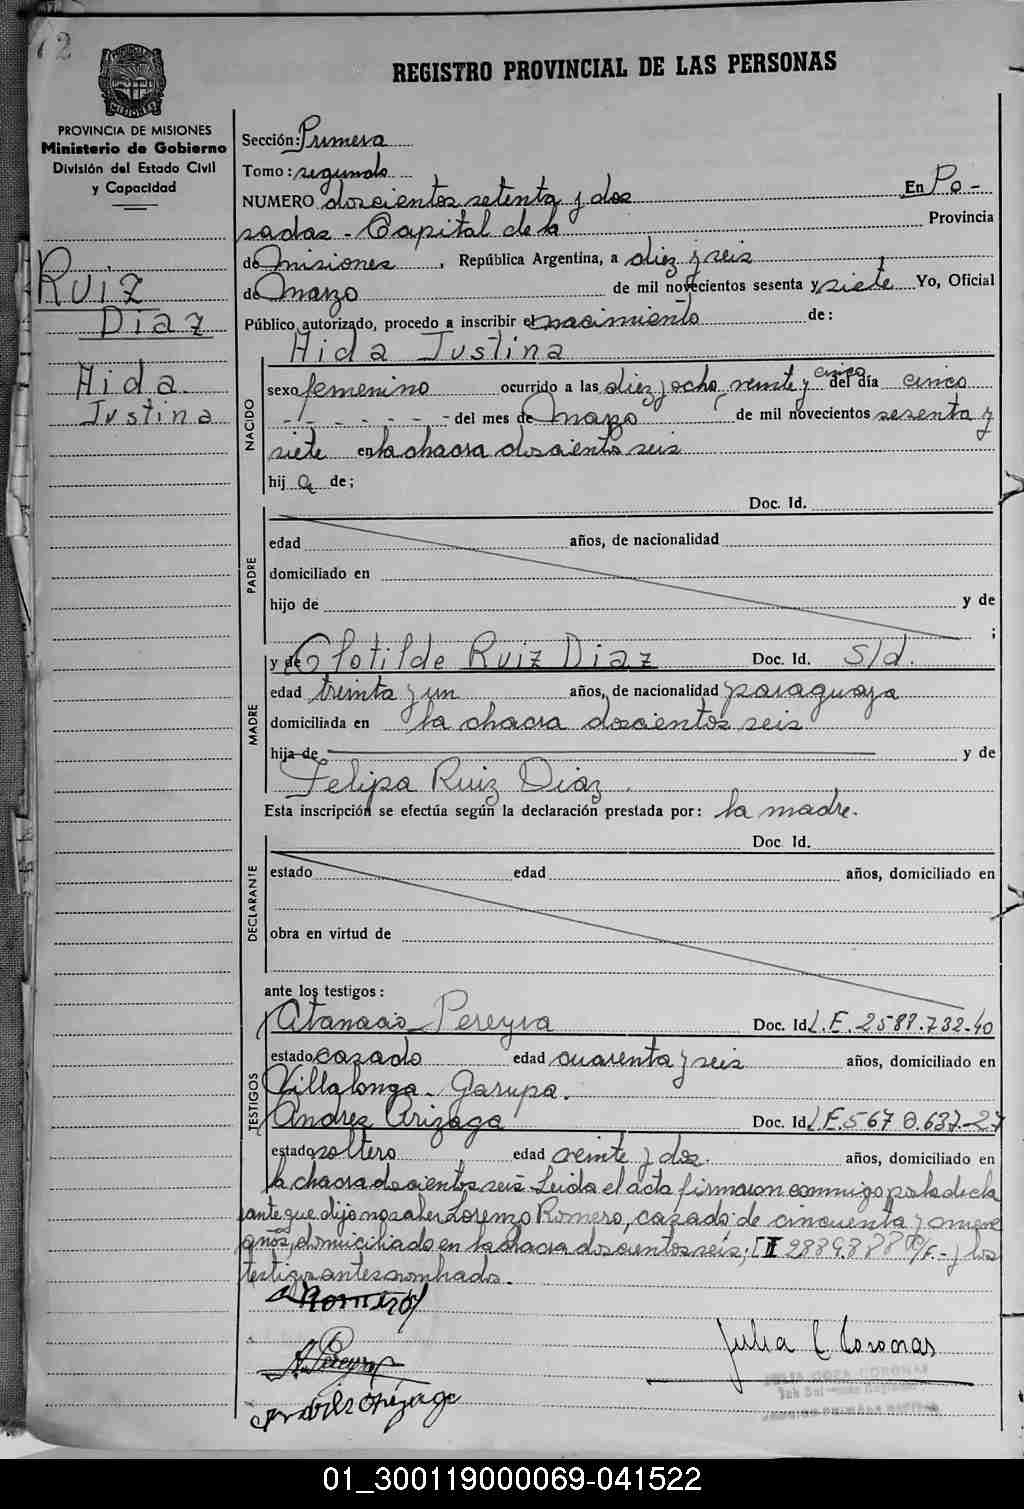 72
REGISTRO PROVINCIAL DE LAS PERSONAS
PROVINCIA DE MISIONES
Ministerio de Gobierno
División del Estado Civil
y Capacidad
Ruiz
Diaz
Aida
Justina
Sección: Primera
Tomo: segundo
NUMERO doscientos setenta y dos En Po-
sadas - Capital de la Provincia
de Misiones, República Argentina, a diez y seis
de Marzo de mil novecientos sesenta y siete Yo, Oficial
Público autorizado, procedo a inscribir el nacimiento de:
Aida Justina
NACIDO
sexo femenino ocurrido a las diez y ocho veinte y cinco del día cinco
- - - - - - - del mes de Marzo de mil novecientos sesenta y
siete en la chacra doscientos seis
hij a de;
Doc. Id.
PADRE
edad años, de nacionalidad
domiciliado en
hijo de y de
;
y de Clotilde Ruiz Diaz Doc. Id. S/d.
MADRE
edad treinta y un años, de nacionalidad paraguaya
domiciliada en la chacra doscientos seis
hija de y de
Felipa Ruiz Diaz.
Esta inscripción se efectúa según la declaración prestada por: la madre.
Doc. Id.
DECLARANTE
estado edad años, domiciliado en
obra en virtud de
ante los testigos:
Atanacio Pereyra Doc. Id. L.E. 2588.732.40
TESTIGOS
estado casado edad cuarenta y seis años, domiciliado en
Villalonga - Garupa.
Andres Arizaga Doc. Id. L.E. 567 0.637-27
estado soltero edad veinte y dos. años, domiciliado en
la chacra doscientos seis Leida el acta firmaron conmigo por la decla
rante que dijo no saber Lorenzo Romero, casado de cincuenta y nueve
años, domiciliado en la chacra doscientos seis; y los
testigos antes nombrados.
Romero
A. Pereyra
Julia C Coronas
01_300119000069-041522